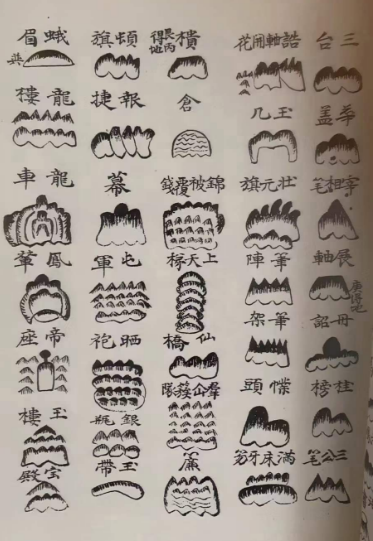 三台
華盖
宰相筆
展軸
冊詔
挂榜
三公筆
誥軸開花
玉几
狀元旗
筆陣
筆架
幞頭
滿床牙笏
樻
艮丙得地
倉
錦被覆錢
上天梯
仙橋
簾
頓旗
報捷
幕
屯軍
晒袍
銀瓶
玉帶
蛾眉
龍樓
龍車
鳳輦
帝座
玉樓
寶殿